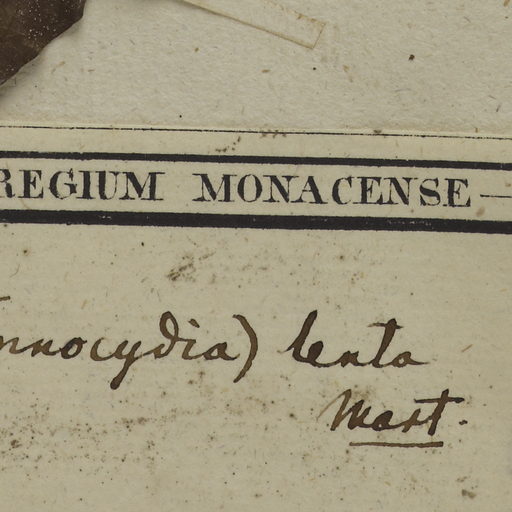 REGIUM MONACENSE —
nnocydia) lenta
Mart.